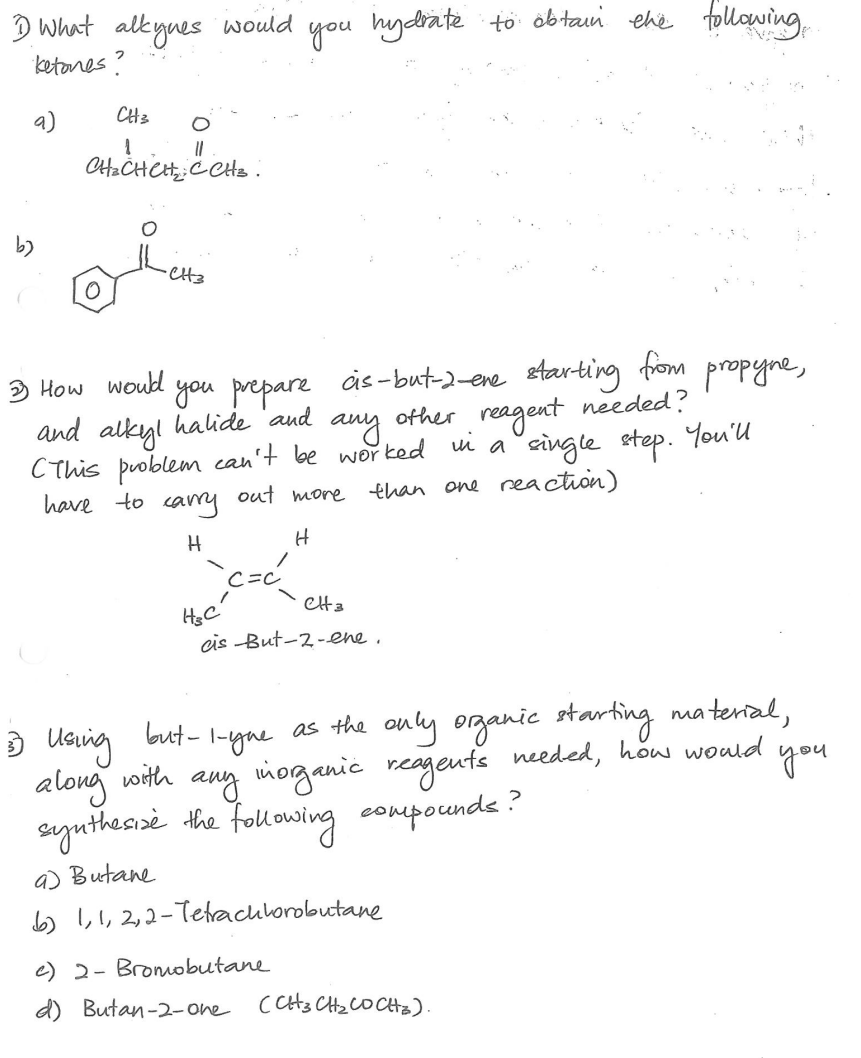 ① What alkynes would you hydrate to obtain the following
ketones?
a)
CH3 O
CH3CHCH2CCH3.
b)
O
CH3
② How would you prepare cis-but-2-ene starting from propyne,
and alkyl halide and any other reagent needed?
(This problem can't be worked in a single step. You'll
have to carry out more than one reaction)
H H
C=C
H3C CH3
cis-But-2-ene.
③ Using but-1-yne as the only organic starting material,
along with any inorganic reagents needed, how would you
synthesize the following compounds?
a) Butane
b) 1,1,2,2-Tetrachlorobutane
c) 2-Bromobutane
d) Butan-2-one (CH3CH2COCH3).